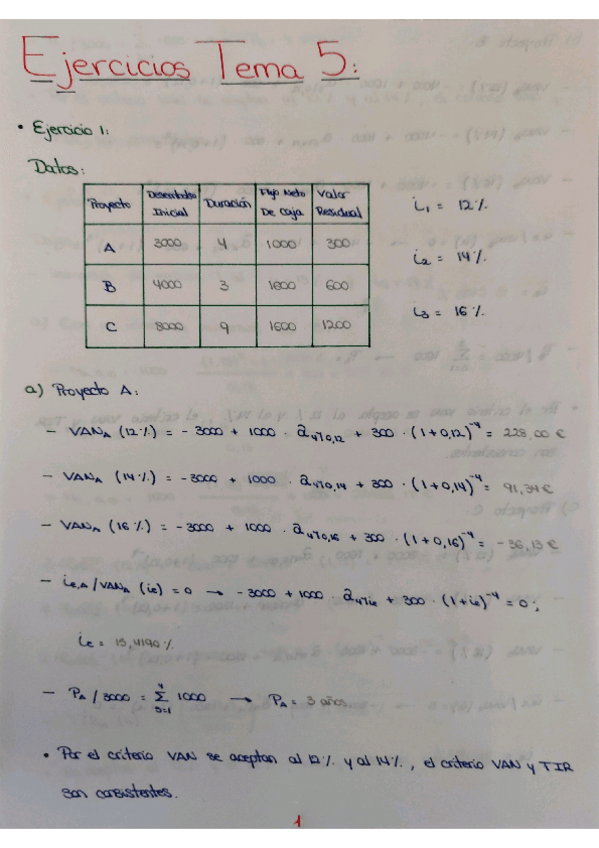 Ejercicios Tema 5:
• Ejercicio 1:
Datos:
Proyecto | Desembolso Inicial | Duración | Flujo Neto De Caja | Valor Residual
A | 3000 | 4 | 1000 | 300
B | 4000 | 3 | 1600 | 600
C | 8000 | 9 | 1600 | 1200
i₁ = 12%
i₂ = 14%
i₃ = 16%
a) Proyecto A:
- VANA (12%) = - 3000 + 1000 · a4¬0,12 + 300 · (1+0,12)⁻⁴ = 228,00 €
- VANA (14%) = - 3000 + 1000 · a4¬0,14 + 300 · (1+0,14)⁻⁴ = 91,34 €
- VANA (16%) = - 3000 + 1000 · a4¬0,16 + 300 · (1+0,16)⁻⁴ = - 36,13 €
- ie,A / VANA (ie) = 0 → - 3000 + 1000 · a4¬ie + 300 · (1+ie)⁻⁴ = 0;
ie = 15,4190%
- PA / 3000 = Σ 1000 → PA = 3 años
• Por el criterio VAN se aceptan al 12% y al 14%, el criterio VAN y TIR
son consistentes.
1